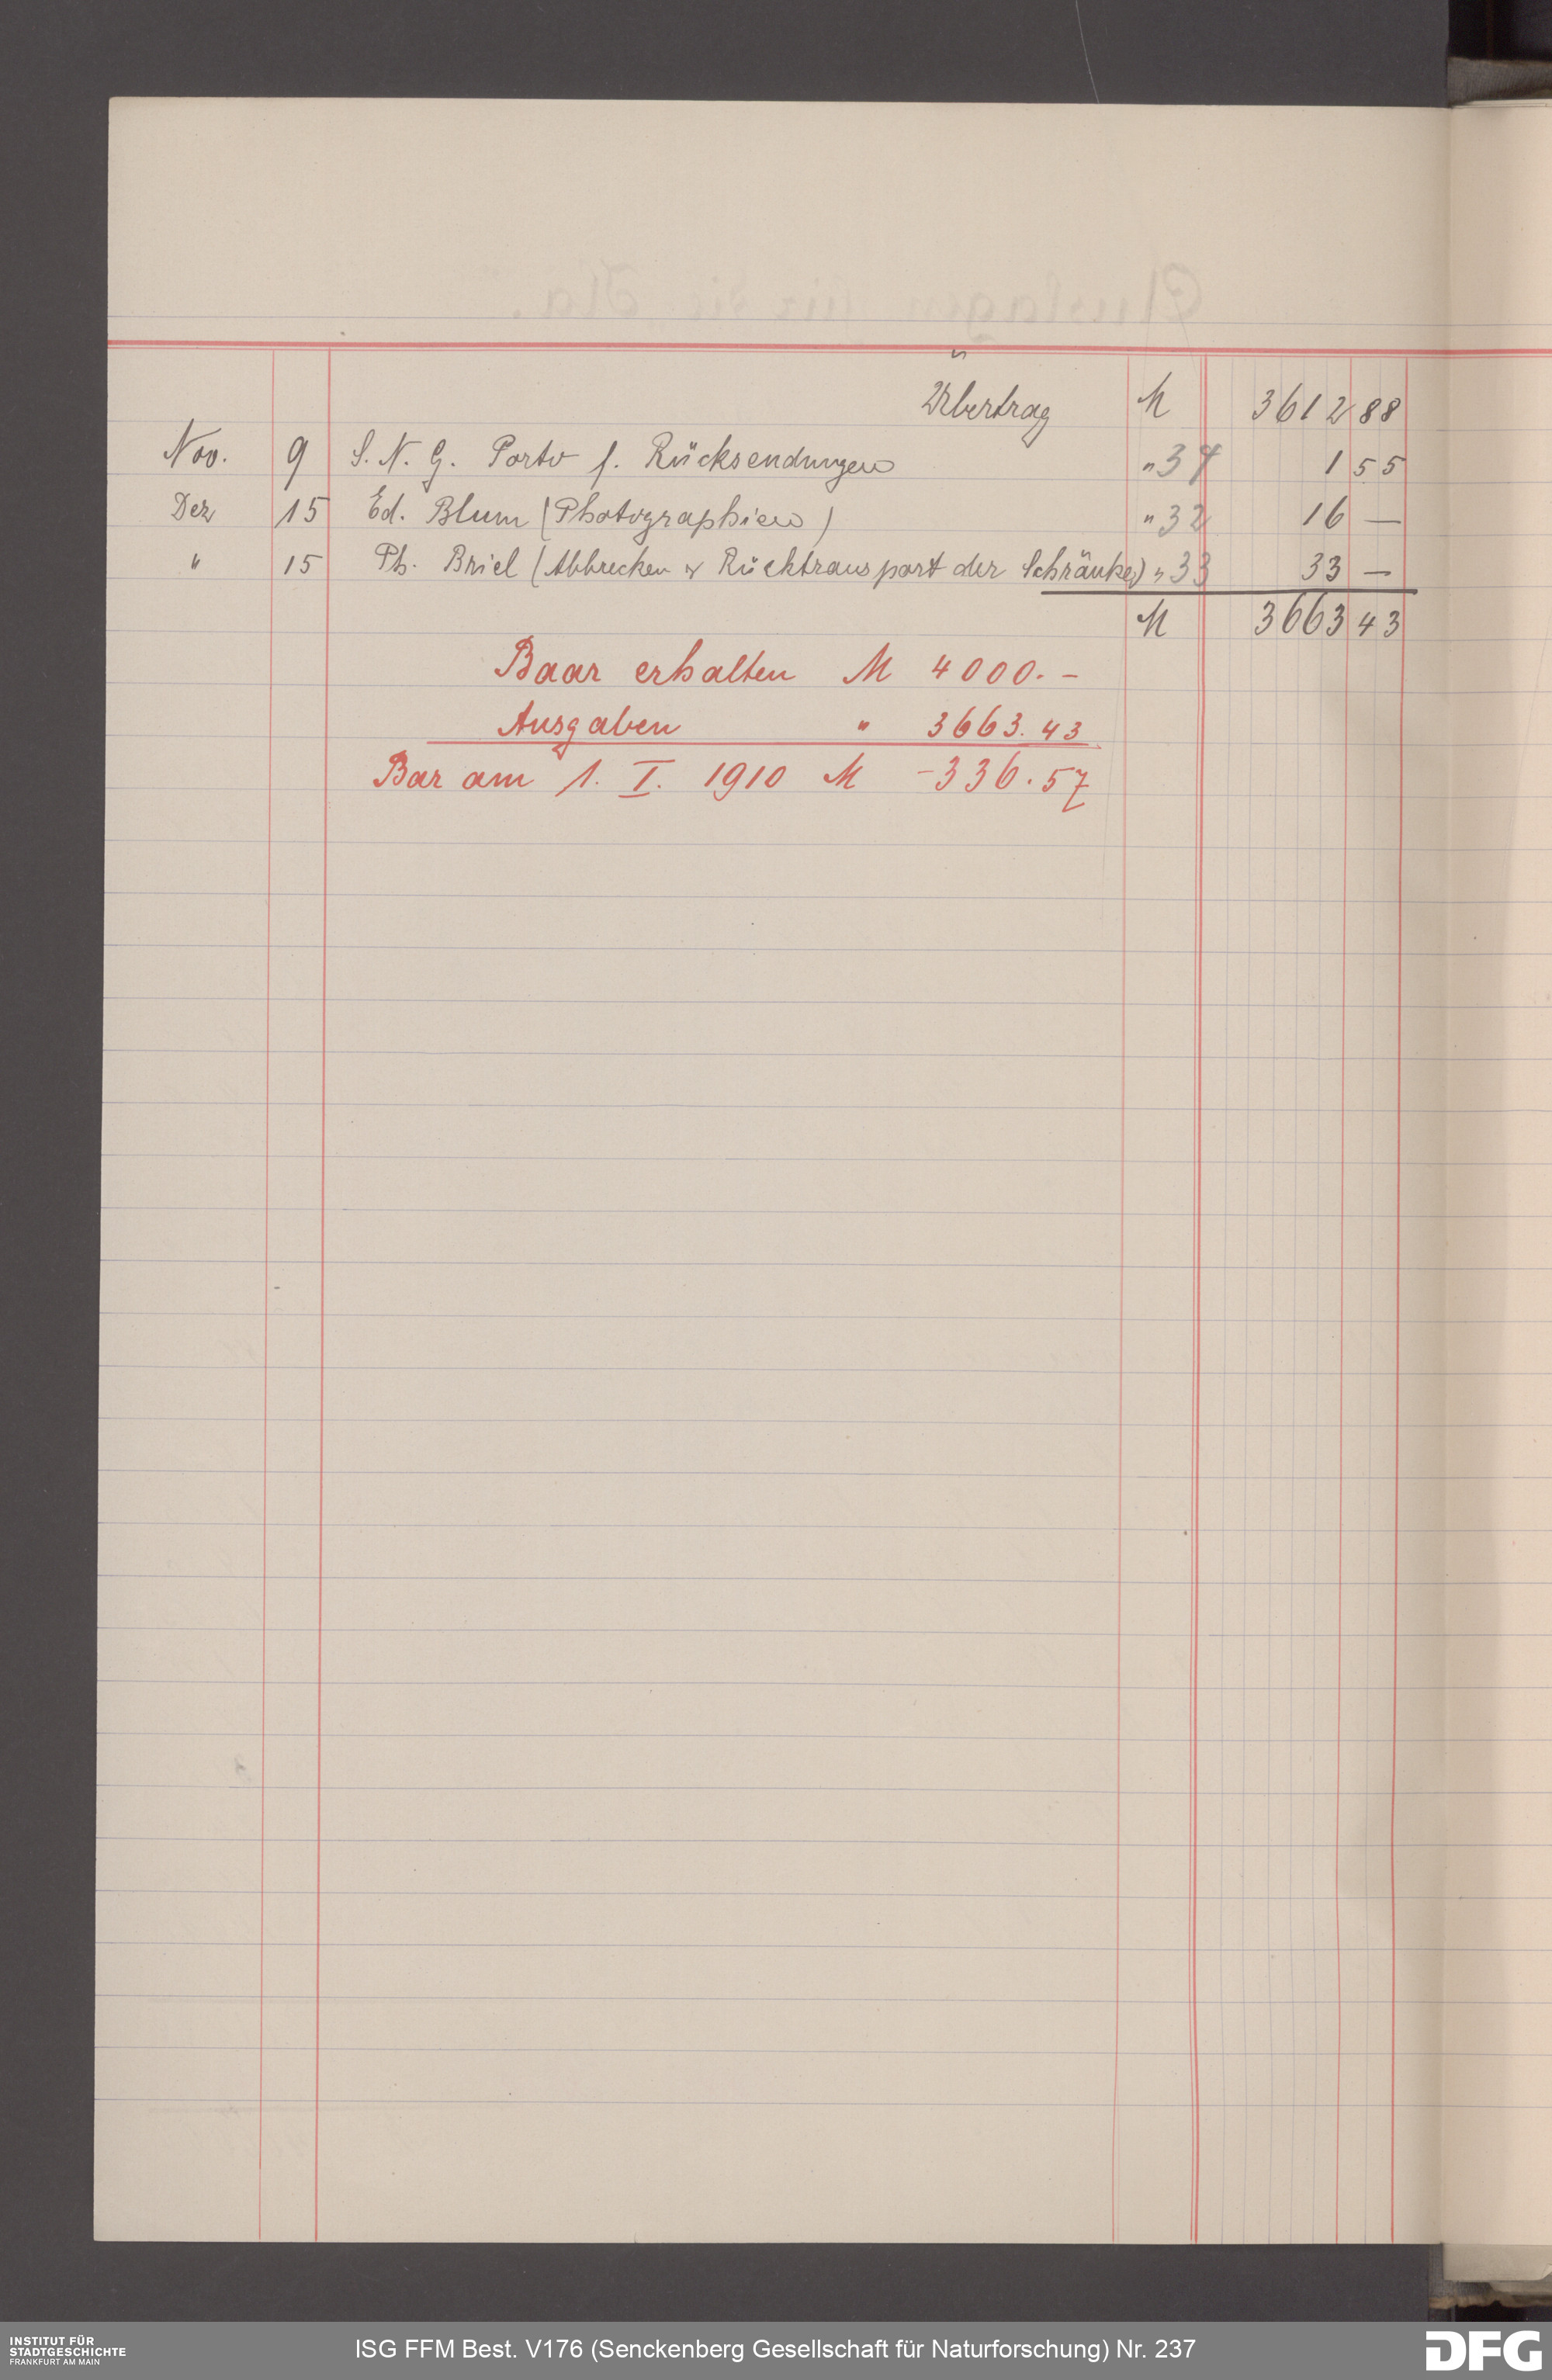 Übertrag M 3612 88
Nov. 9 S. N. G. Porto f. Rücksendungen " 34 1 55
Dez 15 Ed. Blum (Photographien) " 32 16 —
" 15 Ph. Briel (Abbrechen & Rücktransport der Schränke) " 33 33 —
M 3663 43
Baar erhalten M 4000. –
Ausgaben " 3663. 43
Bar am 1. I. 1910 M – 336. 57
INSTITUT FÜR
STADTGESCHICHTE
FRANKFURT AM MAIN
ISG FFM Best. V176 (Senckenberg Gesellschaft für Naturforschung) Nr. 237
DFG